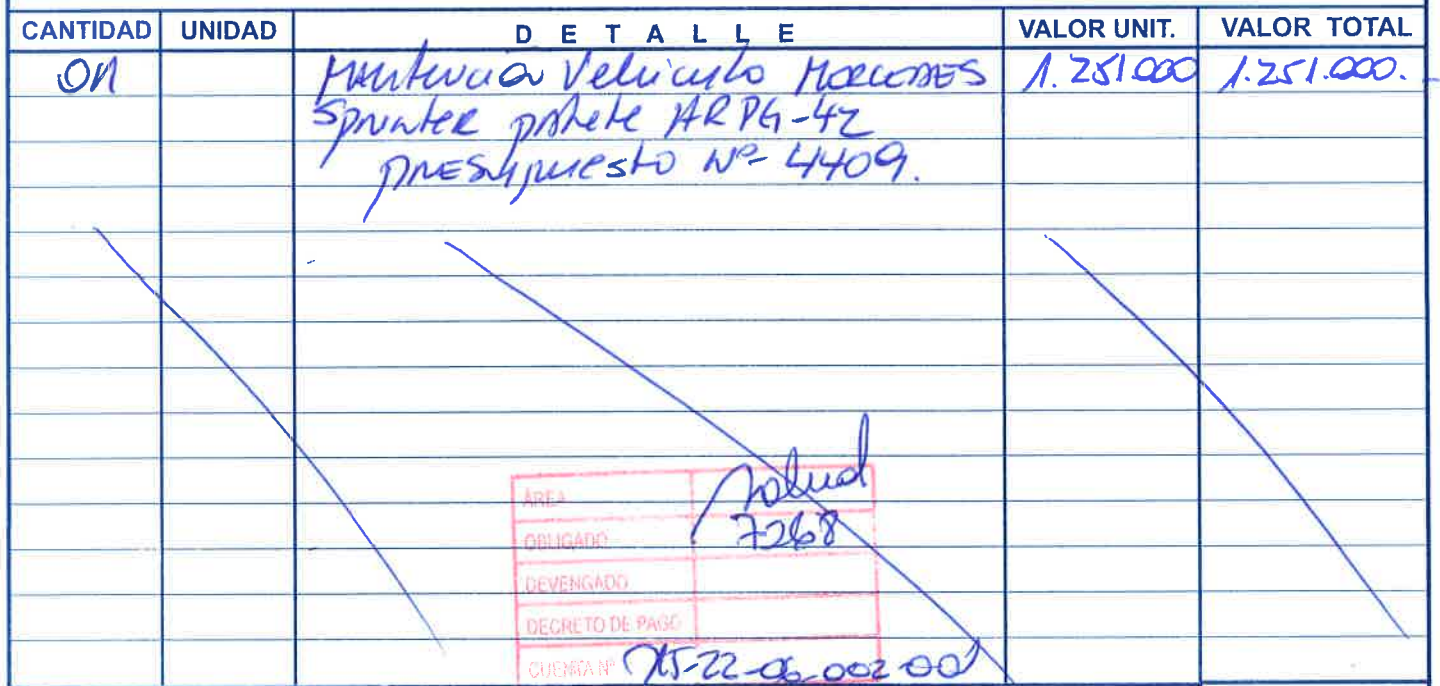 CANTIDAD UNIDAD DETALLE VALOR UNIT. VALOR TOTAL
01 Mantención Vehículo MERCEDES 1.251.000 1.251.000.
Sprinter patente HRPG-42
presupuesto Nº 4409.
ÁREA Salud
OBLIGADO 7268
DEVENGADO
DECRETO DE PAGO
CUENTA Nº 215-22-06-002-00